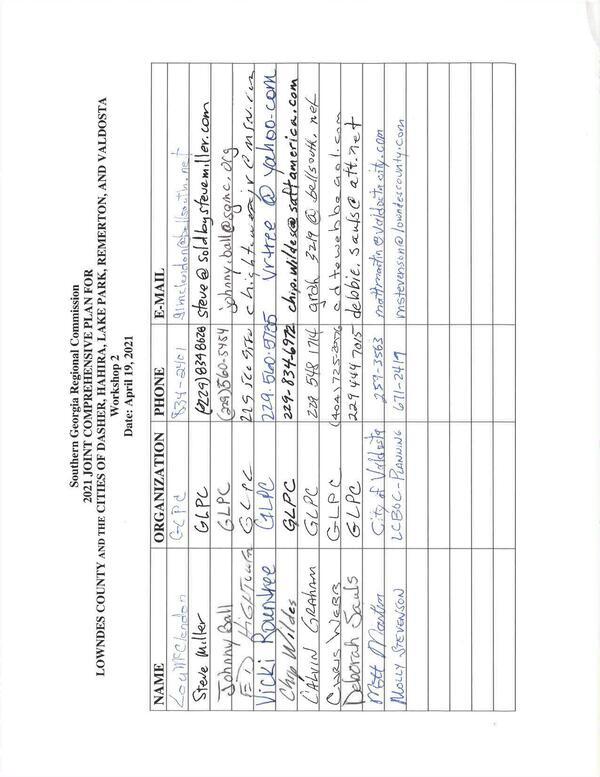 Southern Georgia Regional Commission
2021 JOINT COMPREHENSIVE PLAN FOR
LOWNDES COUNTY AND THE CITIES OF DASHER, HAHIRA, LAKE PARK, REMERTON, AND VALDOSTA
Workshop 2
Date: April 19, 2021
NAME ORGANIZATION PHONE E-MAIL
GLPC 834-2401
Steve Miller GLPC (229) 834 8626 steve@soldbystevemiller.com
Johnny Ball GLPC (229) 560-5454 johnny.ball@sgmc.org
ED HIGHTOWER GLPC 229
Vicki Rountree GLPC 229.560.5735 vrtree@yahoo.com
Chip Wildes GLPC 229-834-6972 chip.wildes@saftamerica.com
CALVIN GRAHAM GLPC 229 548 1714 grah3219@bellsouth.net
CHRIS WEBB GLPC cdtowebb@aol.com
Deborah Sauls GLPC 229 444 7015 debbie.sauls@att.net
Matt Martin City of Valdosta 259-3563 mattmartin@valdostacity.com
MOLLY STEVENSON LCBOC-PLANNING 671-2419 mstevenson@lowndescounty.com